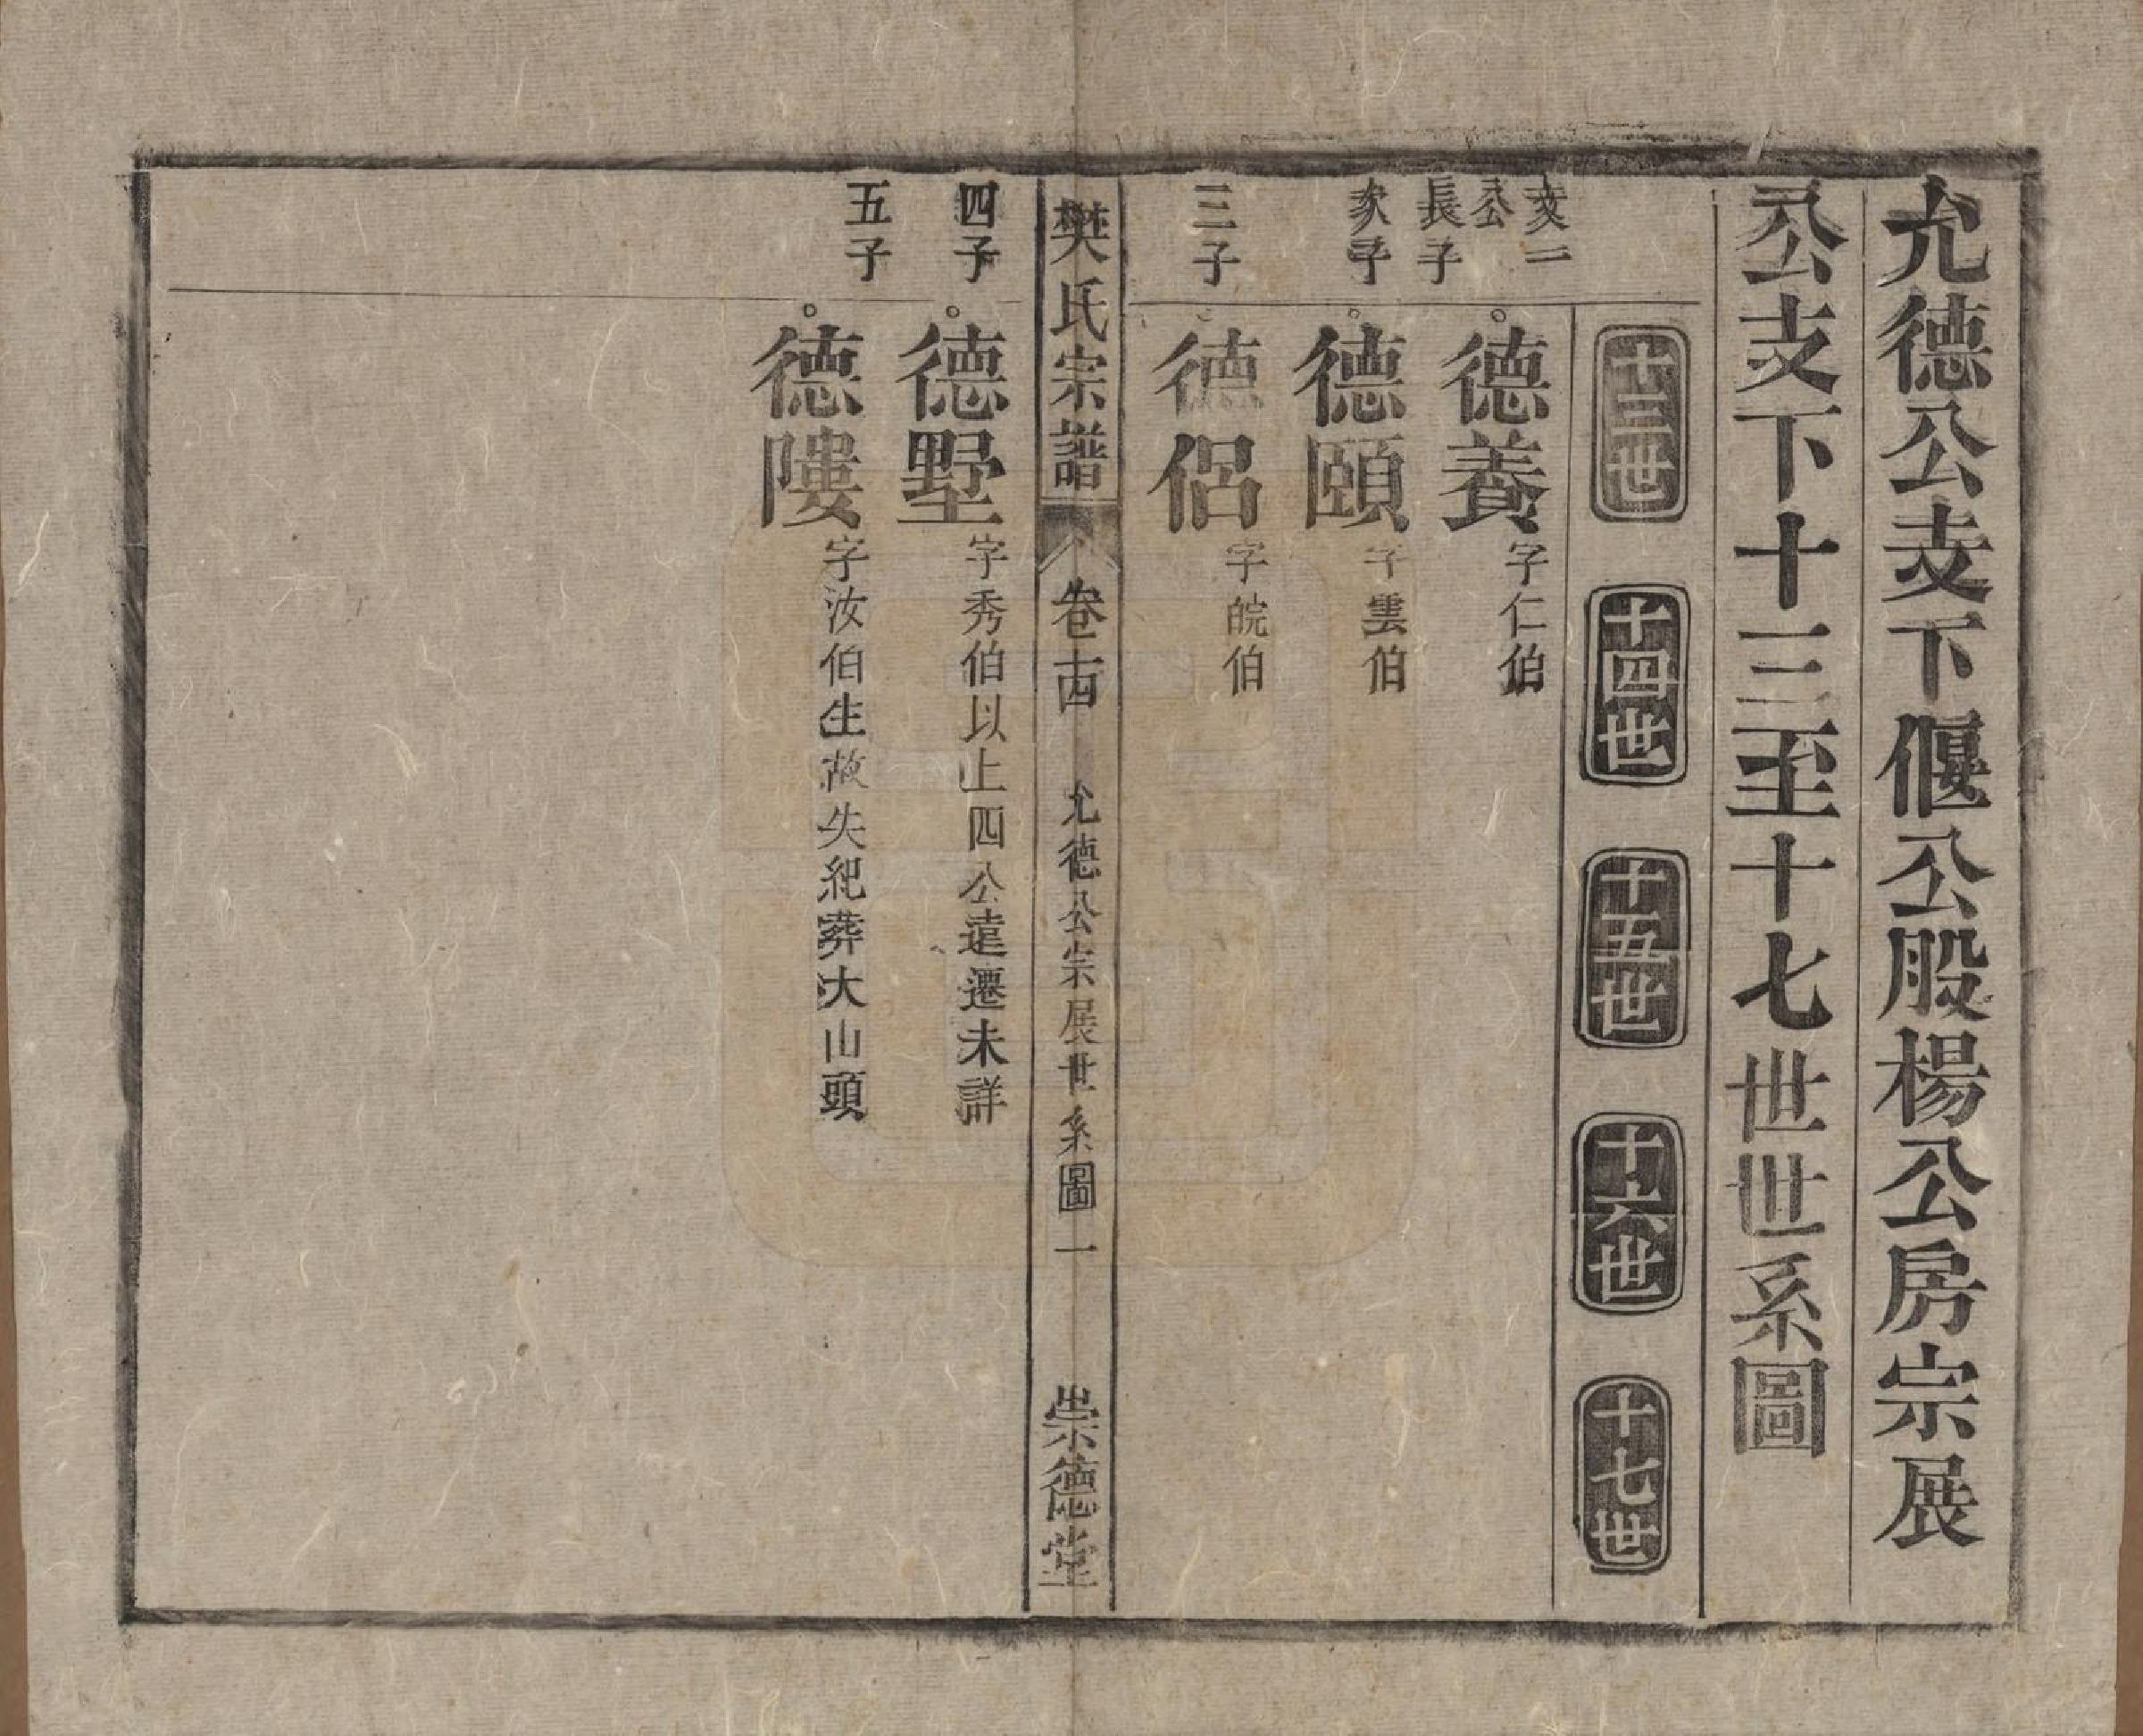 允德公支下偃公股楊公房宗展
公支下十三至十七世世系圖
十三世
十四世
十五世
十六世
十七世
文一
公
長子
德養字仁伯
次子
德頤字雲伯
三子
德侶字皖伯
樊氏宗譜
卷十四
允德公宗展世系圖一
崇德堂
四子
德墅字秀伯以上四公遠遷未詳
五子
德塿字汝伯生故失紀葬大山頭